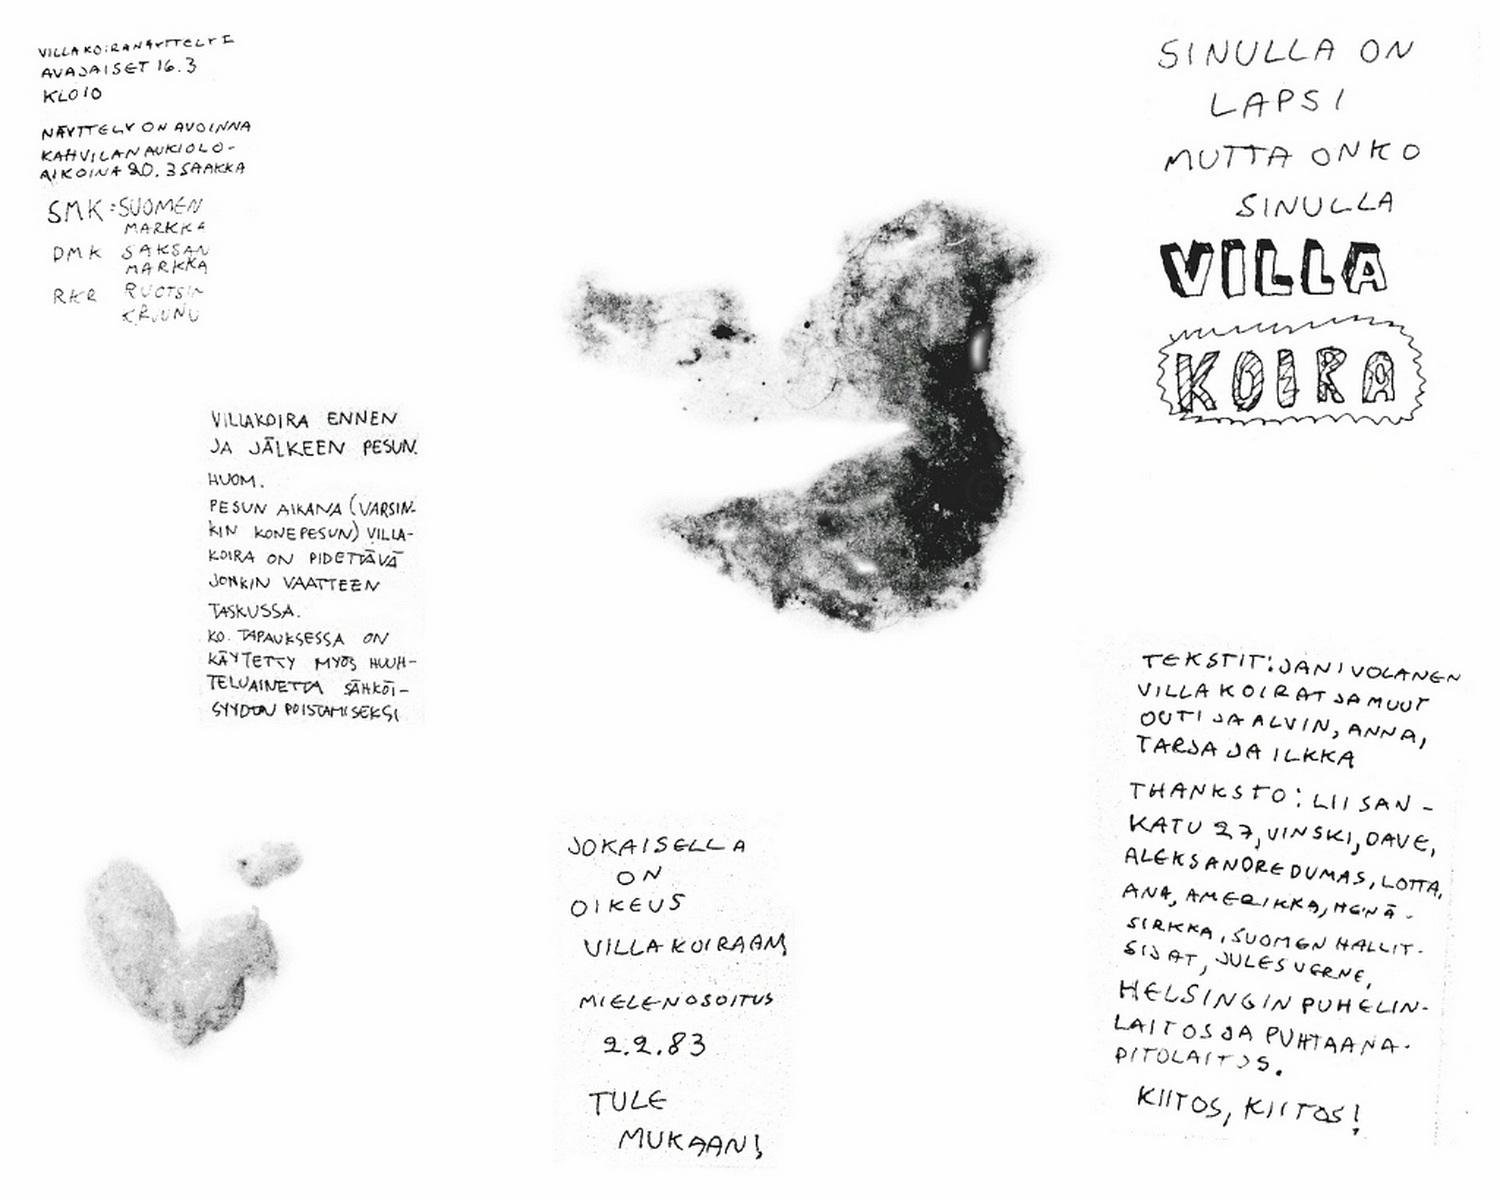 VILLAKOIRANÄYTTELYI
AVAJAISET 16.3
KLO10
NÄYTTELY ON AVOINNA
KAHVILAN AUKIOLO-
AIKOINA 20.3 SAAKKA
SMK:SUOMEN
MARKKA
DMK SAKSAN
MARKKA
RKR RUOTSIN
KRUUNU
VILLAKOIRA ENNEN
JA JÄLKEEN PESUN.
HUOM.
PESUN AIKANA (VARSIN-
KIN KONEPESUN) VILLA-
KOIRA ON PIDETTÄVÄ
JONKIN VAATTEEN
TASKUSSA.
KO. TAPAUKSESSA ON
KÄYTETTY MYÖS HUUH-
TELUAINETTA SÄHKÖI-
SYYDEN POISTAMISEKSI
JOKAISELLA
ON
OIKEUS
VILLAKOIRAAN!
MIELENOSOITUS
2.2.83
TULE
MUKAAN!
SINULLA ON
LAPSI
MUTTA ONKO
SINULLA
VILLA
KOIRA
TEKSTIT: JANI VOLANEN
VILLAKOIRAT JA MUUT
OUTI JA ALVIN, ANNA,
TARJA JA ILKKA
THANKS TO: LIISAN-
KATU 27, VINSKI, DAVE,
ALEKSANDRE DUMAS, LOTTA,
ANA, AMERIKKA, HEINÄ-
SIRKKA, SUOMEN HALLIT-
SIJAT, JULES VERNE,
HELSINGIN PUHELIN-
LAITOS JA PUHTAANA-
PITOLAITOS.
KIITOS, KIITOS!